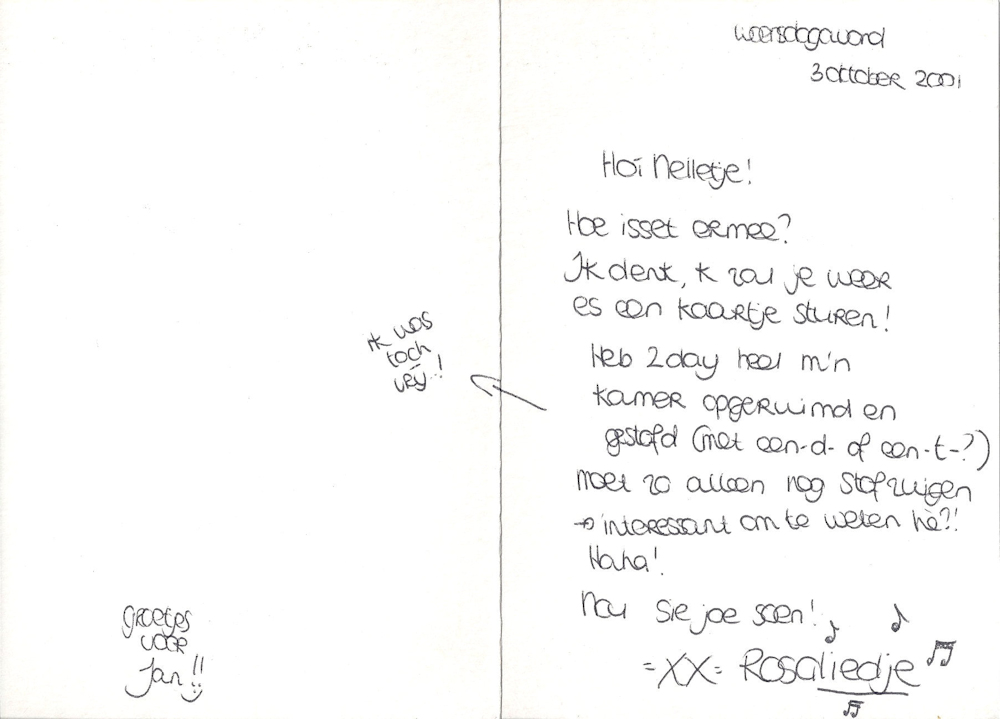 woensdagavond
3 oktober 2001
Hoi Nelletje!
Hoe isset ermee?
Ik denk, k zou je weer
es een kaartje sturen!
Heb 2day heel m'n
kamer opgeruimd en
gestofd (met een -d- of een -t-?)
moet zo alleen nog stofzuigen
→ interessant om te weten hè?!
Haha!
Nou sie joe soen!
=XX= Rosaliedje
ik was
toch
vrij..!
Groetjes
voor
Jan!!